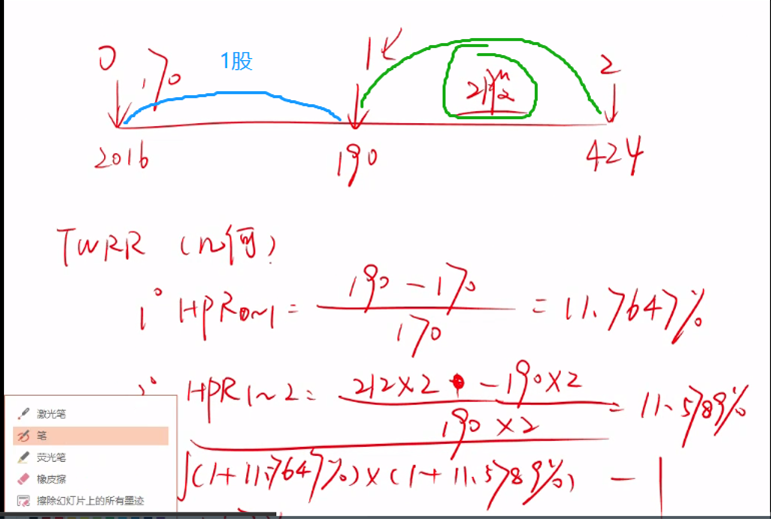 0 170 1股 1 2股 2
2016 190 212 424
TWRR (几何)
1° HPR0~1 = 190 - 170 / 170 = 11.7647%
2° HPR1~2 = 212×2 - 190×2 / 190×2 = 11.5789%
√(1+11.7647%)×(1+11.5789%) - 1
激光笔
笔
荧光笔
橡皮擦
擦除幻灯片上的所有墨迹